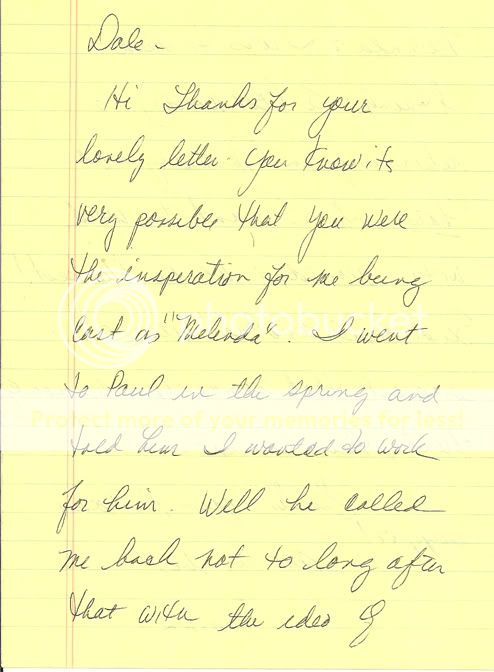 Dale -
Hi Thanks for your
lovely letter. You know its
very possible that you were
the insperation for me being
cast as "Melinda". I went
to Paul in the spring and
told him I wanted to work
for him. Well he called
me back not to long after
that with the idea of
photobucket
Protect more of your memories for less!